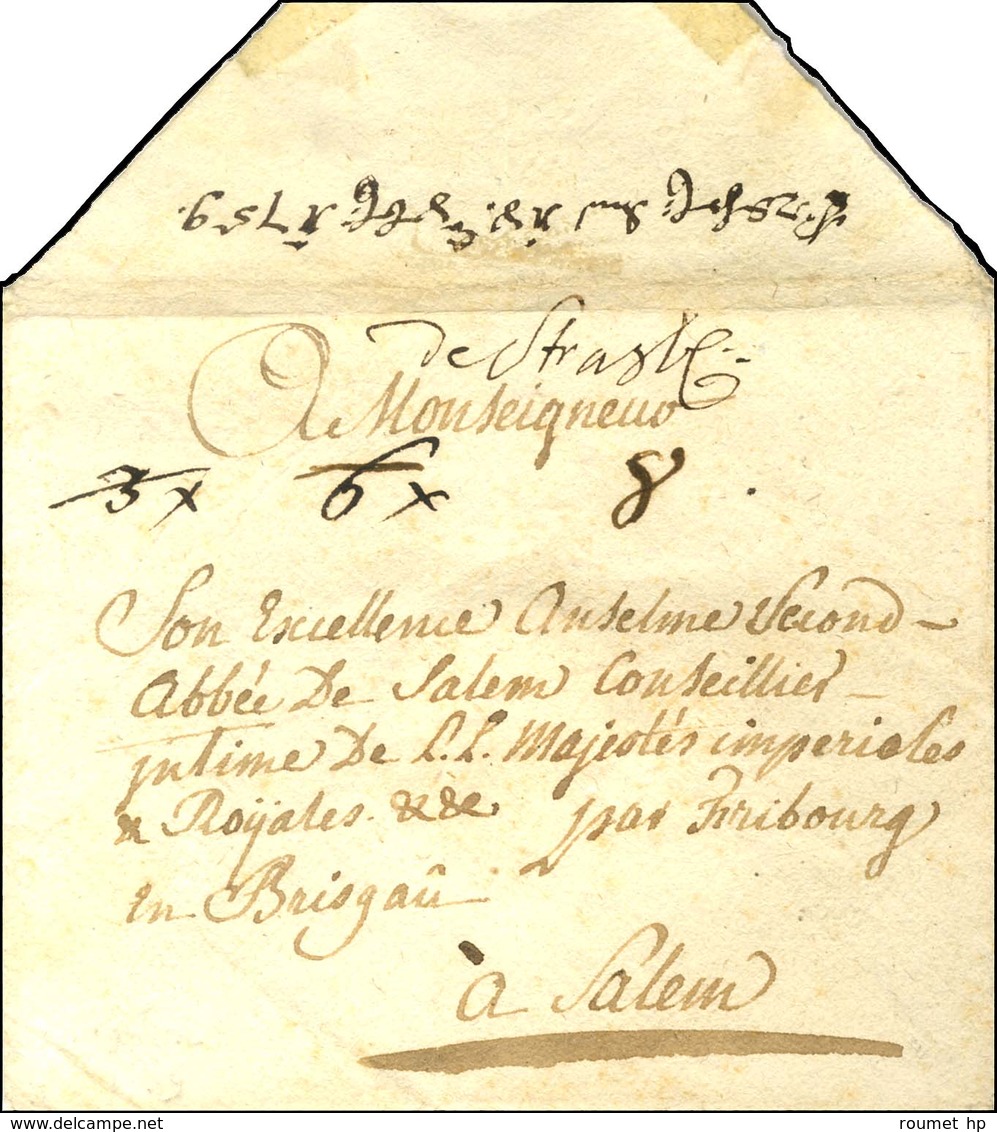 de Strasb
A Monseigneur
3x 6x 8
Son Excellence Anselme Second
Abbée De Salem Conseillier
jntime De L.L. Majestés imperiales
& Roÿales &&& par Fribourg
en Brisgaü
à Salem
roumet hp